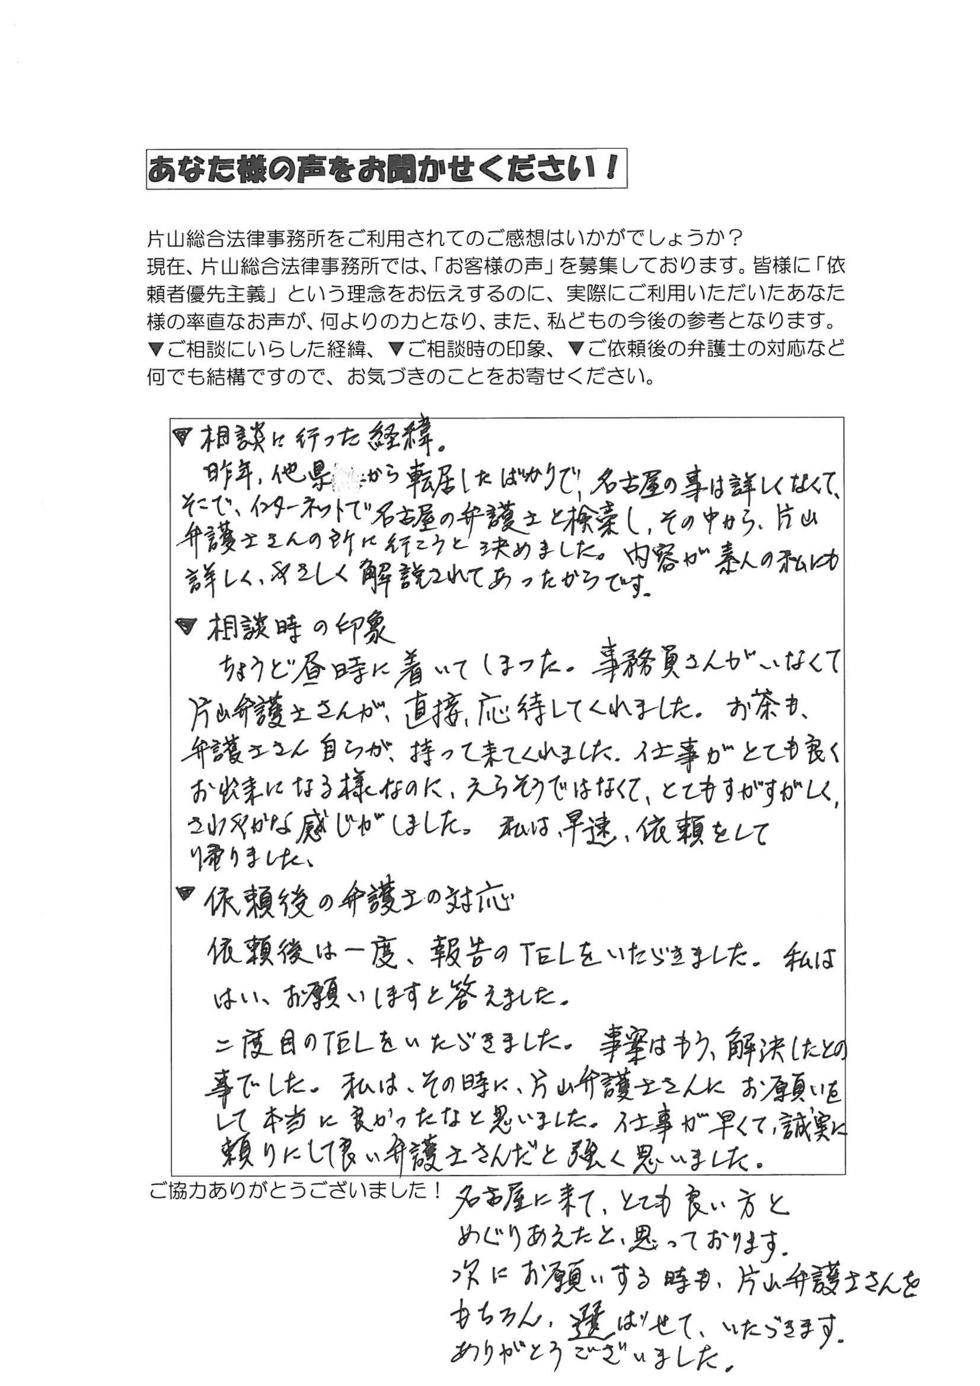 あなた様の声をお聞かせください！
片山総合法律事務所をご利用されてのご感想はいかがでしょうか？
現在、片山総合法律事務所では、「お客様の声」を募集しております。皆様に「依
頼者優先主義」という理念をお伝えするのに、実際にご利用いただいたあなた
様の率直なお声が、何よりの力となり、また、私どもの今後の参考となります。
▼ご相談にいらした経緯、▼ご相談時の印象、▼ご依頼後の弁護士の対応など
何でも結構ですので、お気づきのことをお寄せください。
▼相談に行った経緯。
昨年、他県から転居したばかりで、名古屋の事は詳しくなくて、
そこで、インターネットで名古屋の弁護士と検索し、その中から、片山
弁護士さんの所に行こうと決めました。内容が素人の私にも
詳しく、やさしく解説されてあったからです。
▼相談時の印象
ちょうど昼時に着いてしまった。事務員さんがいなくて
片山弁護士さんが、直接、応待してくれました。お茶も、
弁護士さん自らが、持って来てくれました。仕事がとても良く
お出来になる様なのに、えらそうではなくて、とてもすがすがしく、
さわやかな感じがしました。私は、早速、依頼をして
帰りました、
▼依頼後の弁護士の対応
依頼後は一度、報告のTELをいただきました。私は
はい、お願いしますと答えました。
二度目のTELをいただきました。事案はもう、解決したとの
事でした。私は、その時に、片山弁護士さんにお願いを
して本当に良かったなと思いました。仕事が早くて、誠実に
頼りにして良い弁護士さんだと強く思いました。
ご協力ありがとうございました！
名古屋に来て、とても良い方と
めぐりあえたと、思っております。
次にお願いする時も、片山弁護士さんを
もちろん、選ばせて、いただきます。
ありがとうございました。